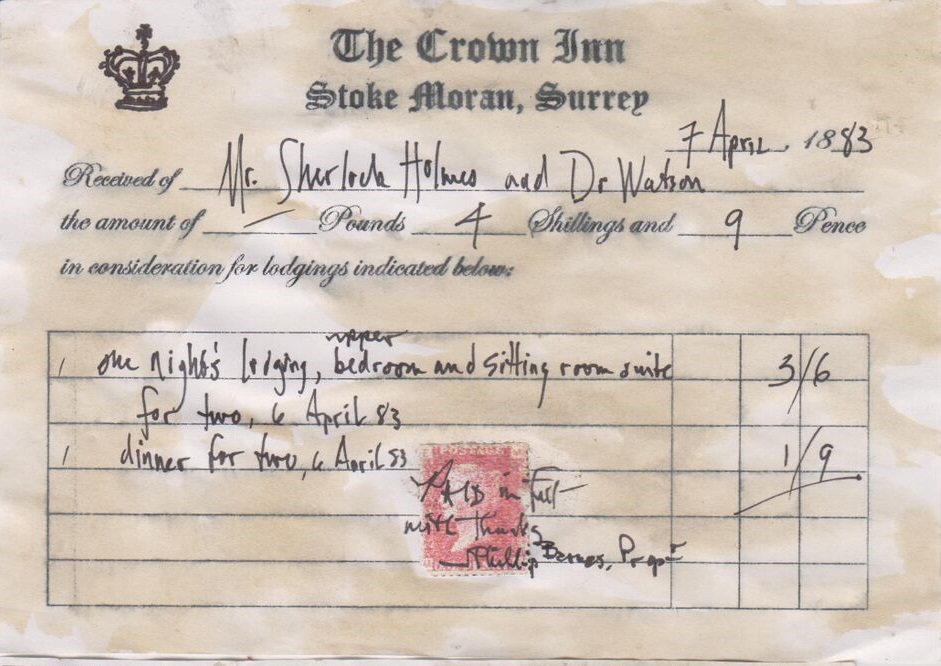 The Crown Inn
Stoke Moran, Surrey
7 April. 1883
Received of Mr. Sherlock Holmes and Dr Watson
the amount of — Pounds 4 Shillings and 9 Pence
in consideration for lodgings indicated below:
upper
1 one night's lodging, bedroom and sitting room suite 3/6
for two, 6 April 83
1 dinner for two, 6 April 83 1/9
POSTAGE
PAID in Full
with thanks
Phillip Barnes, Propr